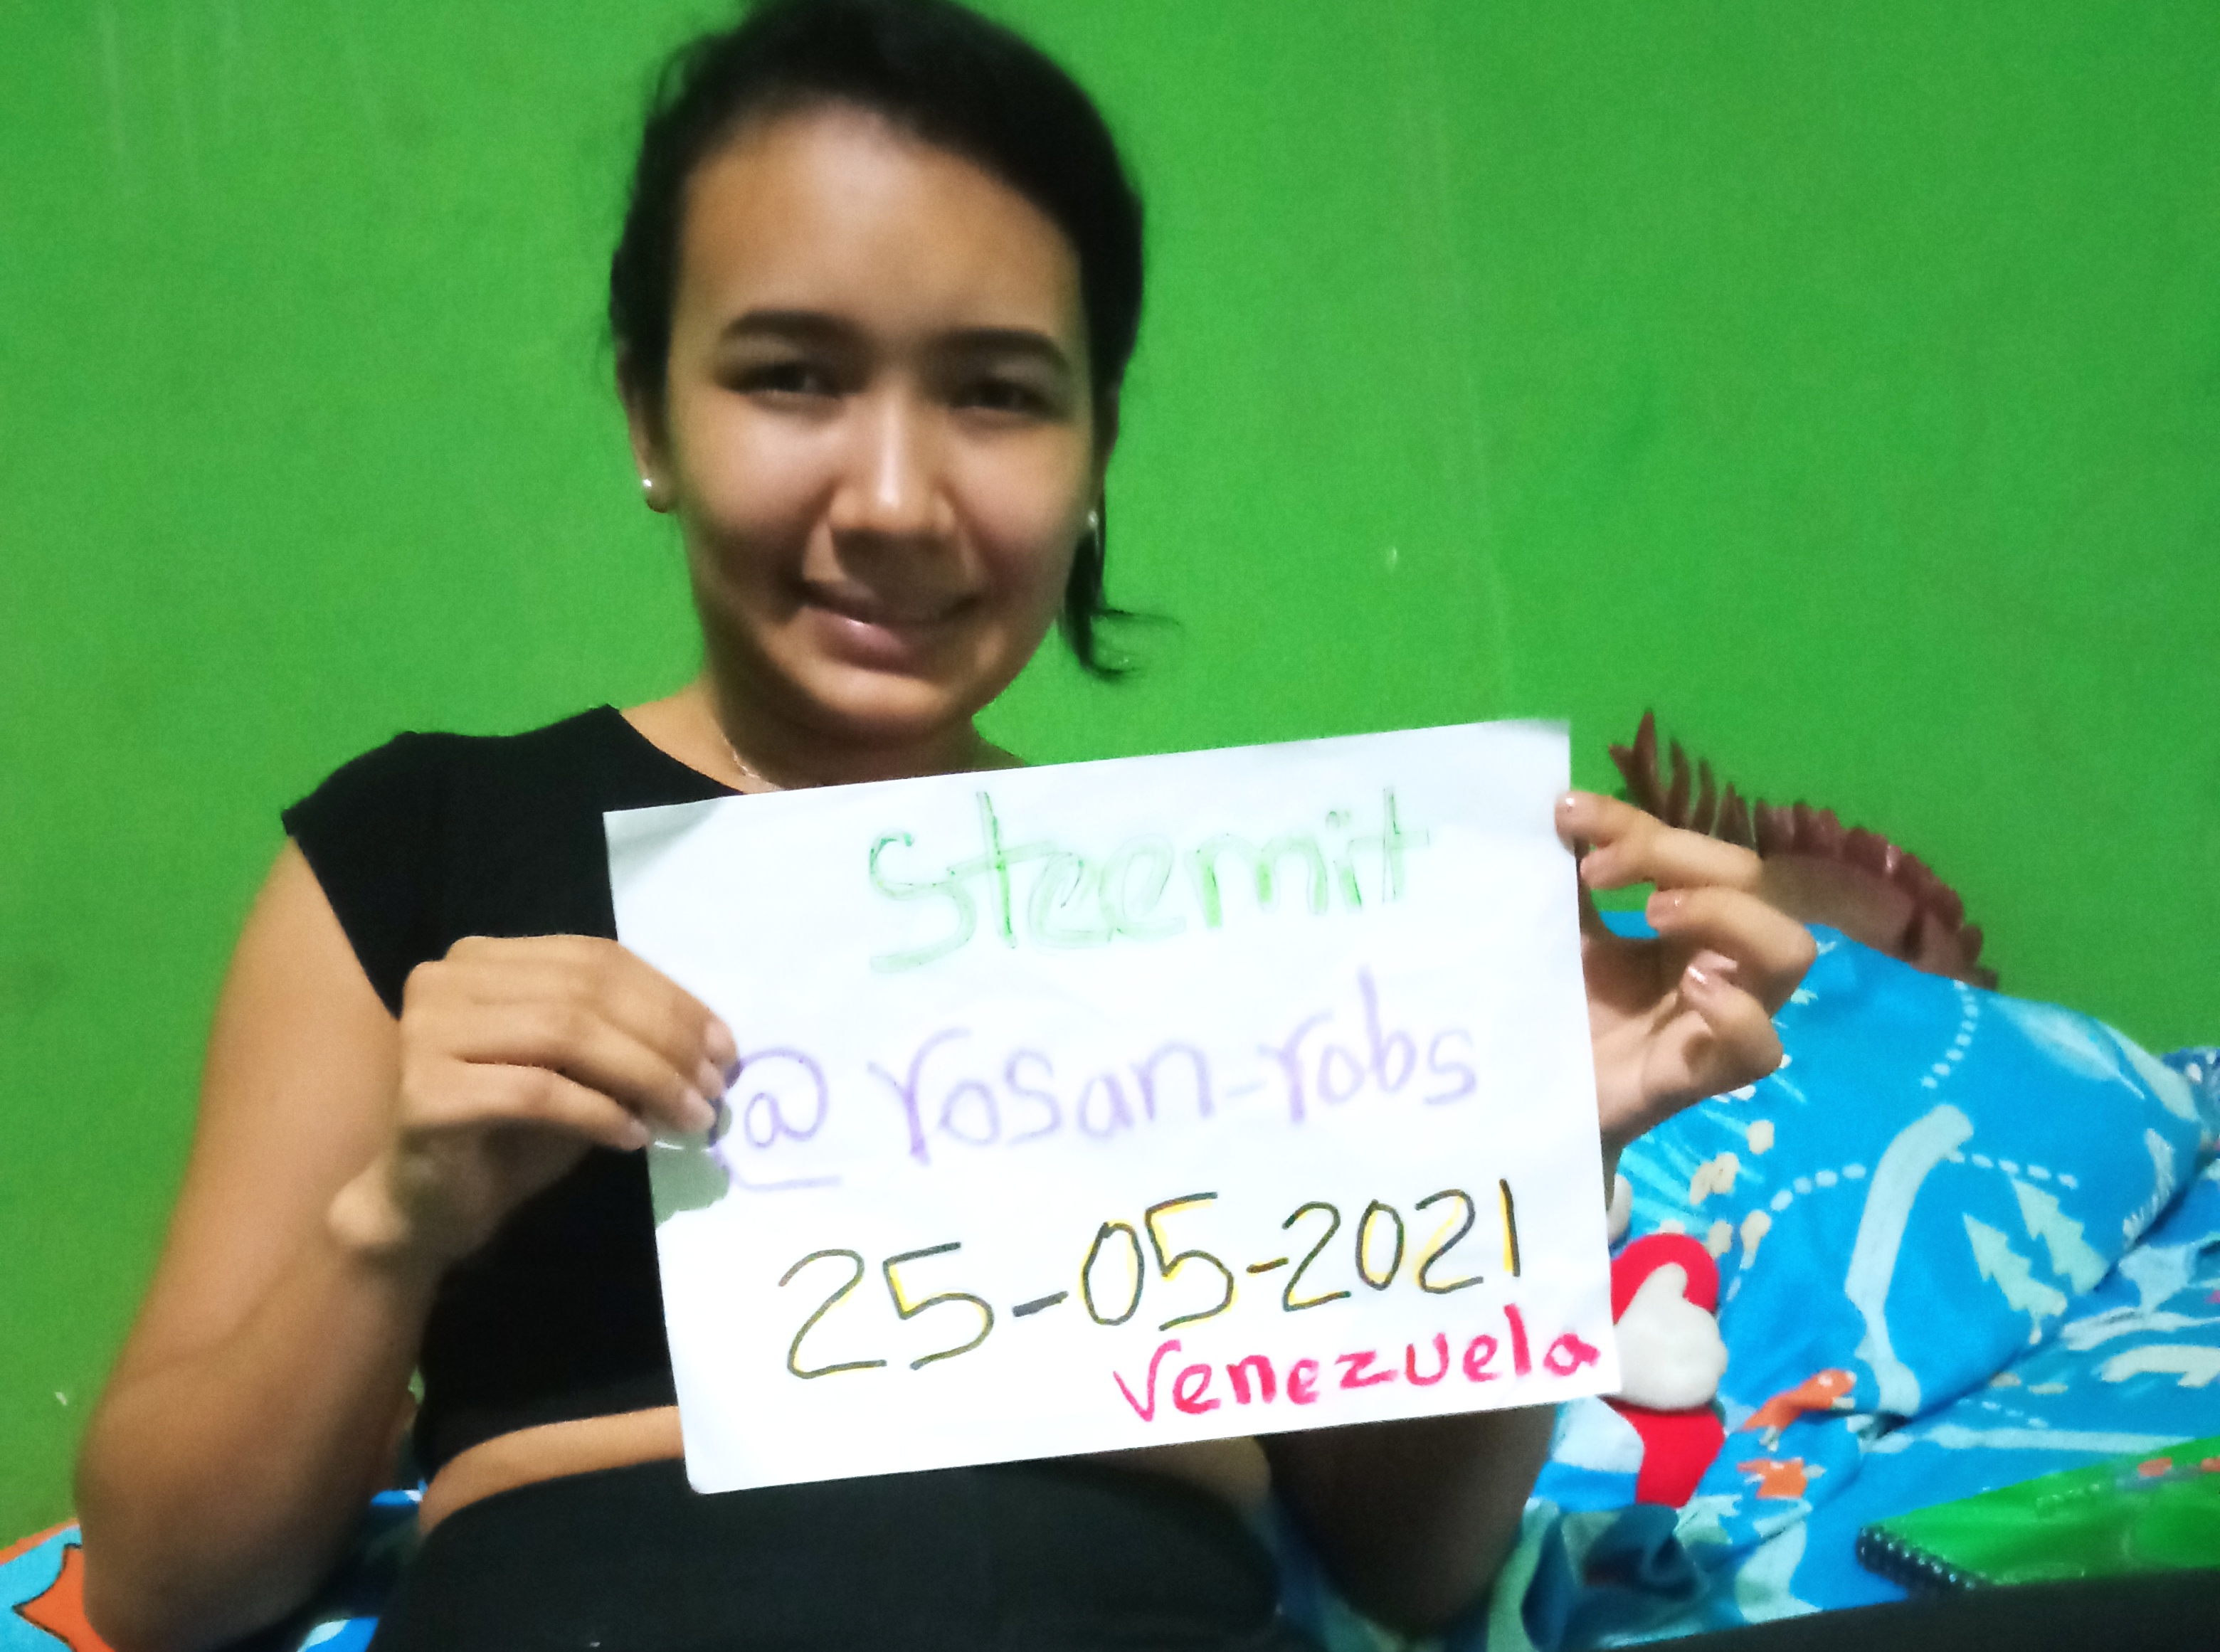 Steemit
@rosan-robs
25-05-2021
Venezuela